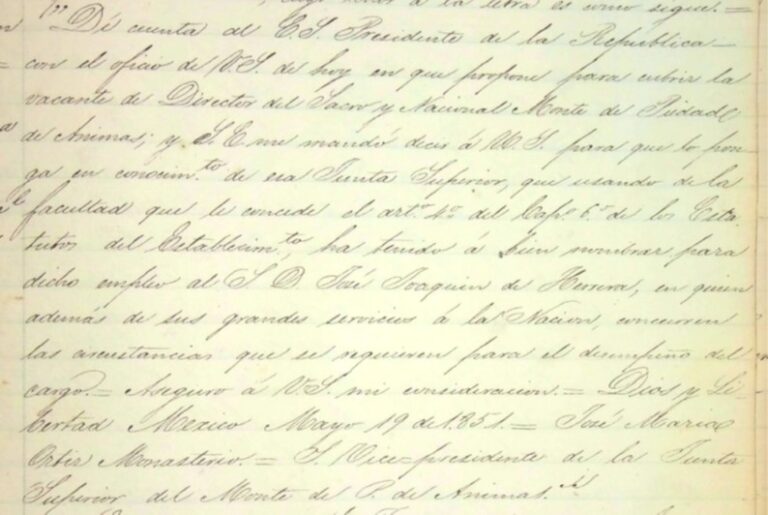 cuyo tenor a la letra es como sigue. =
"Dí cuenta al E.S. Presidente de la República
con el oficio de V.S. de hoy en que propone para cubrir la
vacante de Director del Sacro y Nacional Monte de Piedad
de Animas; y S.E. me mandó decir á V.S. para que lo pon-
ga en conocim.to de esa Junta Superior, que usando de la
facultad que le concede el art.o 4o del Cap.o 6.o de los Esta-
tutos del Establecim.to, ha tenido á bien nombrar para
dicho empleo al S. D. José Joaquin de Herrera, en quien
además de sus grandes servicios á la Nacion, concurren
las circustancias que se requieren para el desempeño del
cargo. = Aseguro á V.S. mi consideracion. = Dios y Li-
bertad Mexico Mayo 19 de 1851. = José Maria
Ortiz Monasterio. = S. Vice=presidente de la Junta
Superior del Monte de P. de Animas."